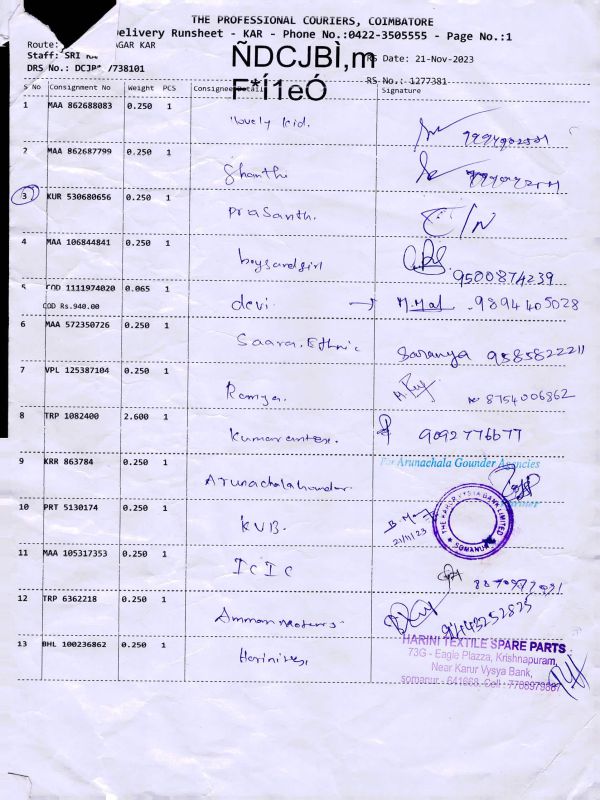 THE PROFESSIONAL COURIERS, COIMBATORE
Delivery Runsheet - KAR - Phone No.:0422-3505555 - Page No.:1
Route: AGAR KAR
Staff: SRI
DRS No.: DCJB /738101
ÑDCJBÌ,m
F*Í1eÓ
RS Date: 21-Nov-2023
RS No.: 1277381
S No Consignment No Weight PCS Consignee Details Signature
1 MAA 862688083 0.250 1 lovely kid.
2 MAA 862687799 0.250 1 Shanthi
3 KUR 530680656 0.250 1 Prasanth.
4 MAA 106844841 0.250 1 boysandgirl 9500874239
5 COD 1111974020 0.065 1 devi. → 9894405028
COD Rs.940.00
6 MAA 572350726 0.250 1 Saara.Ethnic Saranya 9585822211
7 VPL 125387104 0.250 1 Ramya. 8754006862
8 TRP 1082400 2.600 1 9092776677
For Arunachala Gounder Agencies
9 KRR 863784 0.250 1
10 PRT 5130174 0.250 1 KVB. 21/11/23
THE KARUR VYSYA BANK LIMITED
SOMANUR
11 MAA 105317353 0.250 1 ICIC
12 TRP 6362218 0.250 1 Amman Motors 9443252825
13 BHL 100236862 0.250 1
HARINI TEXTILE SPARE PARTS
73G - Eagle Plazza, Krishnapuram,
Near Karur Vysya Bank,
somanur - 641668. Cell : 7708979887